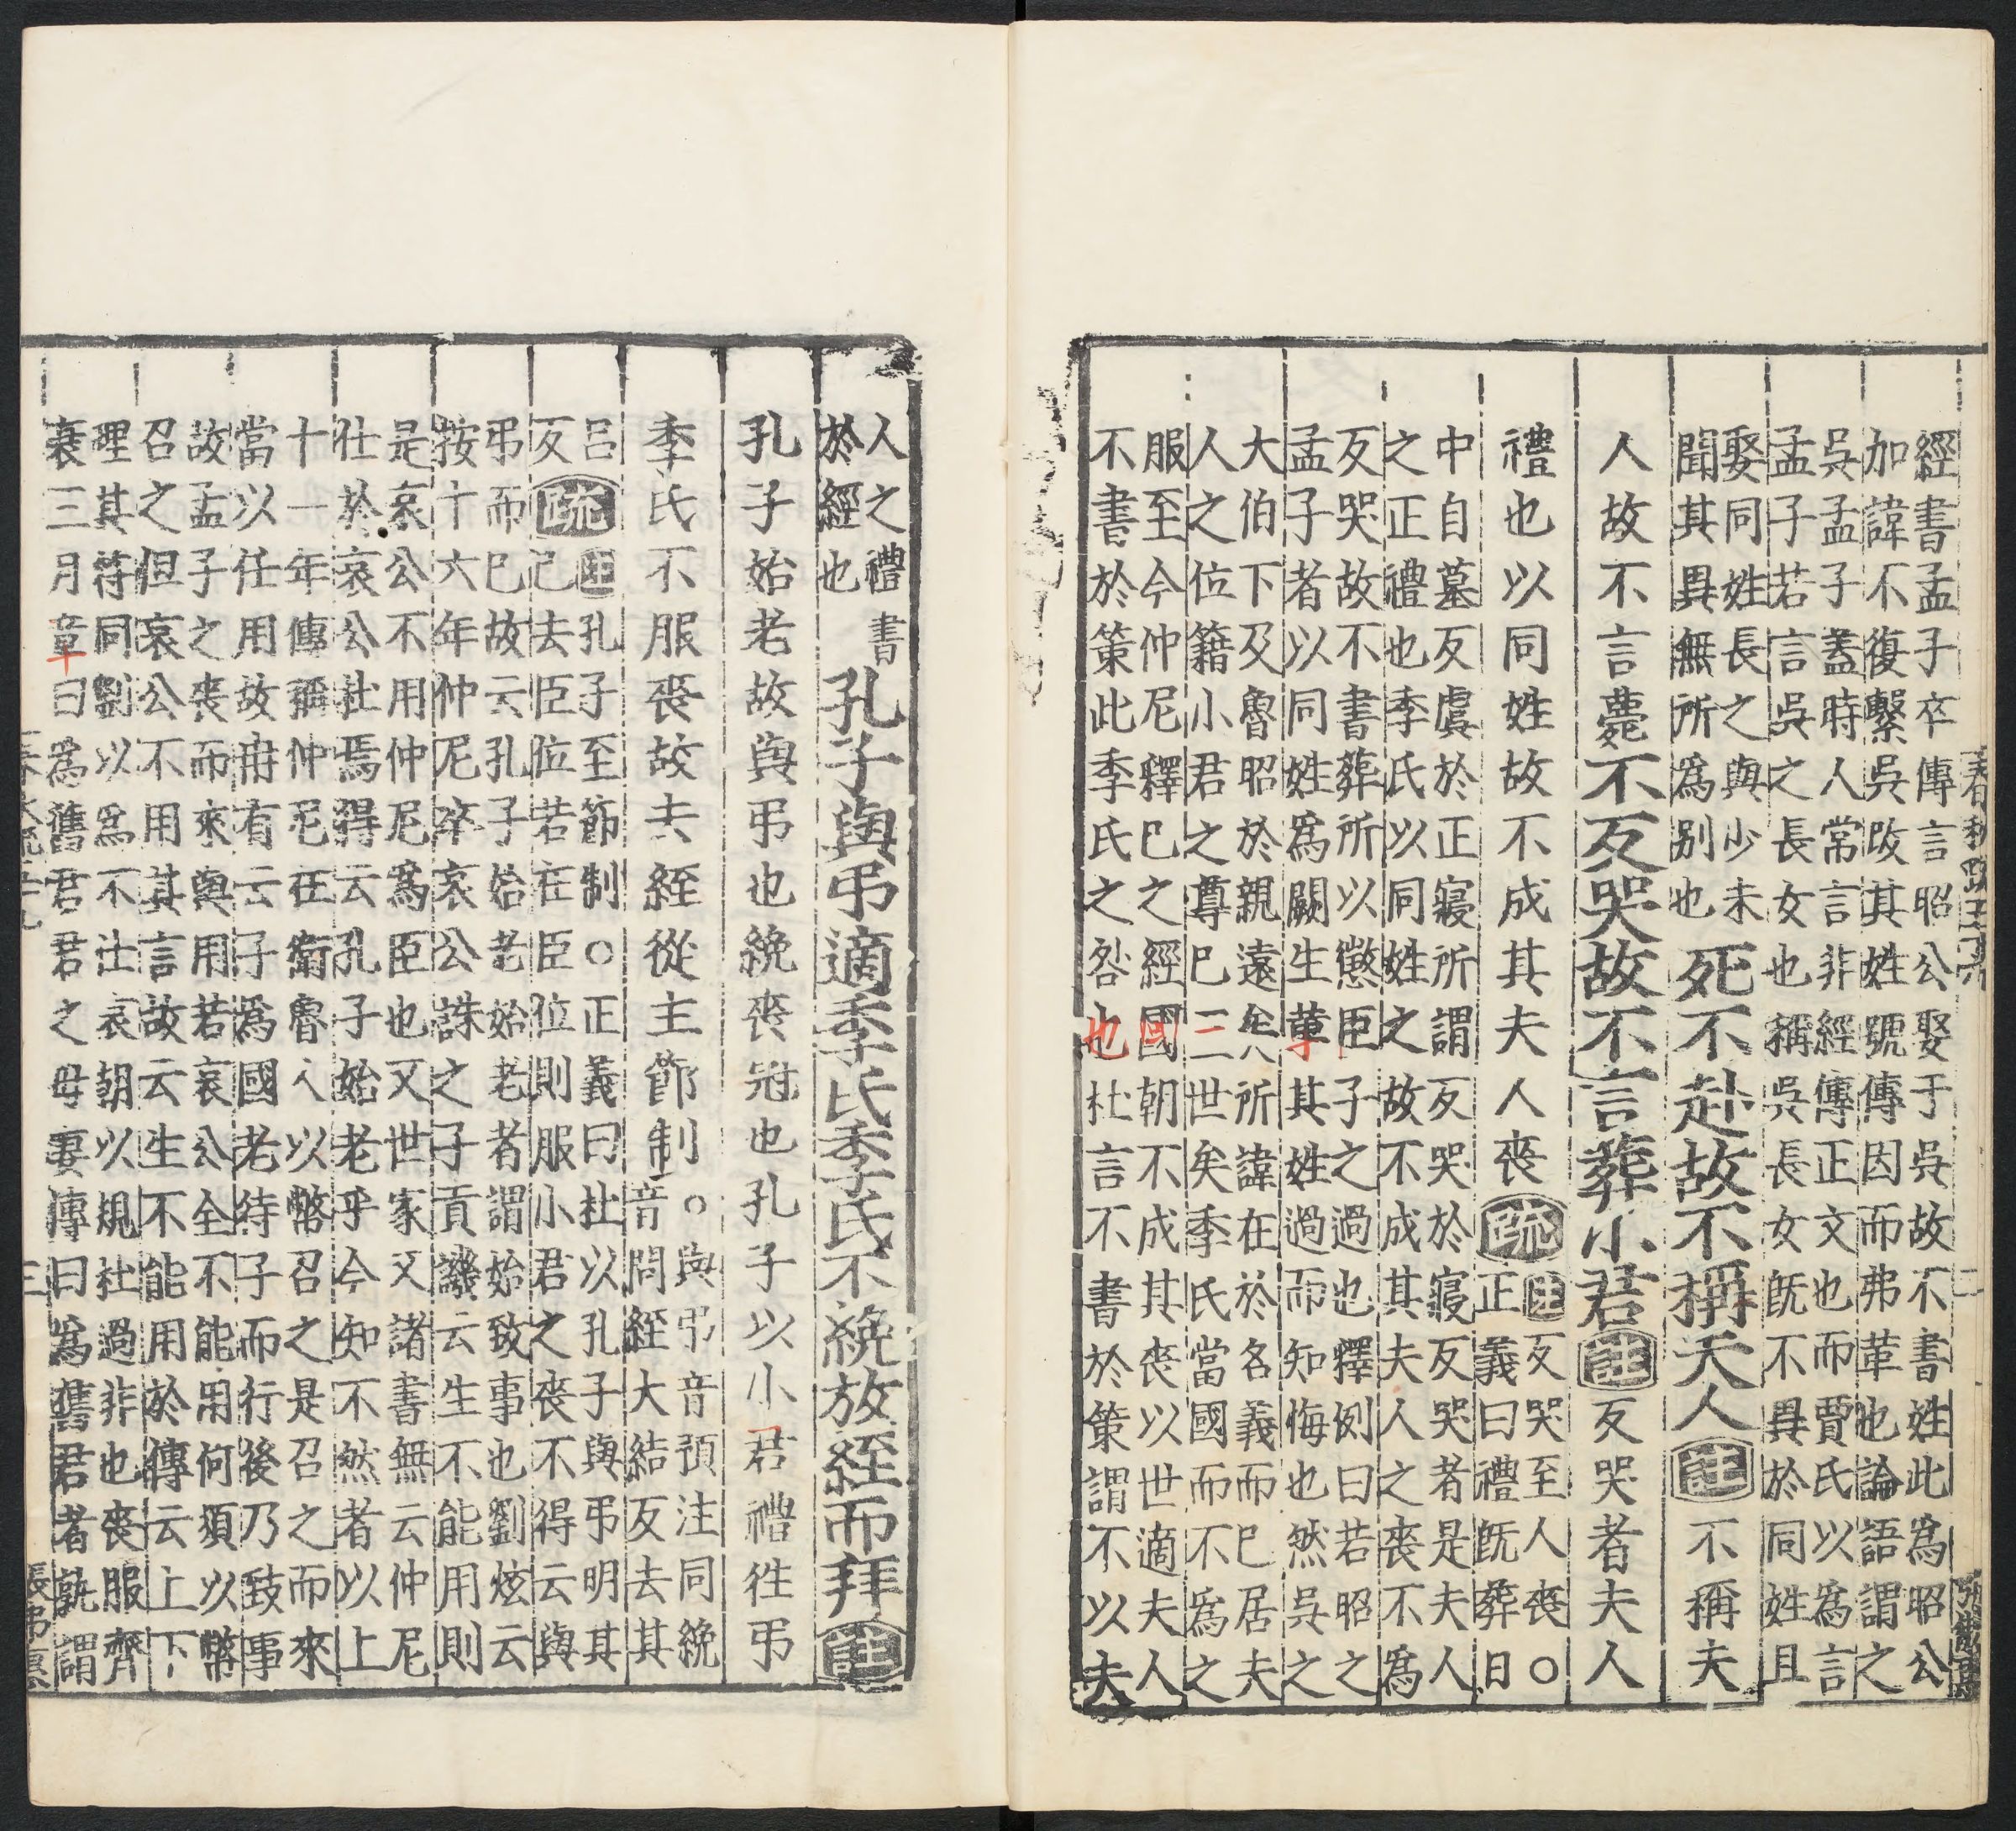 春秋疏五十九
二
經書孟子卒傳言昭公娶于吳故不書姓此爲昭公
加諱不復繫吳改其姓號傳因而弗革也論語謂之
吳孟子蓋時人常言非經傳正文也而賈氏以爲言
孟子若言吳之長女也稱吳長女旣不異於同姓且
娶同姓長之與少未
聞其異無所爲别也
死不赴故不稱夫人註不稱夫
人故不言薨不反哭故不言葬小君註反哭者夫人
禮也以同姓故不成其夫人喪疏註反哭至人喪○
正義曰禮旣葬日
中自墓反虞於正寢所謂反哭於寢反哭者是夫人
之正禮也季氏以同姓之故不成其夫人之喪不爲
反哭故不書葬所以懲臣子之過也釋例曰若昭之
孟子者以同姓爲闕生革其姓過而知悔也然吳之
大伯下及魯昭於親遠矣所諱在於名義而巳居夫
人之位籍小君之尊巳三世矣季氏當國而不爲之
服至今仲尼釋巳之經國朝不成其喪以世適夫人
不書於策此季氏之咎也杜言不書於策謂不以夫
人之禮書
於經也
孔子與弔適季氏季氏不絻放絰而拜註
孔子始老故與弔也絻喪冠也孔子以小君禮徃弔
季氏不服喪故去絰從主節制。與弔音預注同絻
音問絰大結反去其
呂
反
疏註孔子至節制○正義曰杜以孔子與弔明其
己去臣位若在臣位則服小君之喪不得云與
弔而巳故云孔子始老始老者謂始致事也劉炫云
按十六年仲尼卒哀公誄之子貢譏云生不能用則
是哀公不用仲尼爲臣也又世家又諸書無云仲尼
仕於哀公杜焉得云孔子始老乎今知不然者以上
十一年傳稱仲尼在衞魯人以幣召之是召之而來
當以任用故冉有云子爲國老待子而行後乃致事
故孟子之喪而來與用若哀公全不能用何須以幣
召之但哀公不用其言故云生不能用於傳云上下
理其符同劉以爲不仕哀朝以規杜過非也喪服齊
衰三月章曰爲舊君君之母妻傳曰爲舊君者孰謂
三